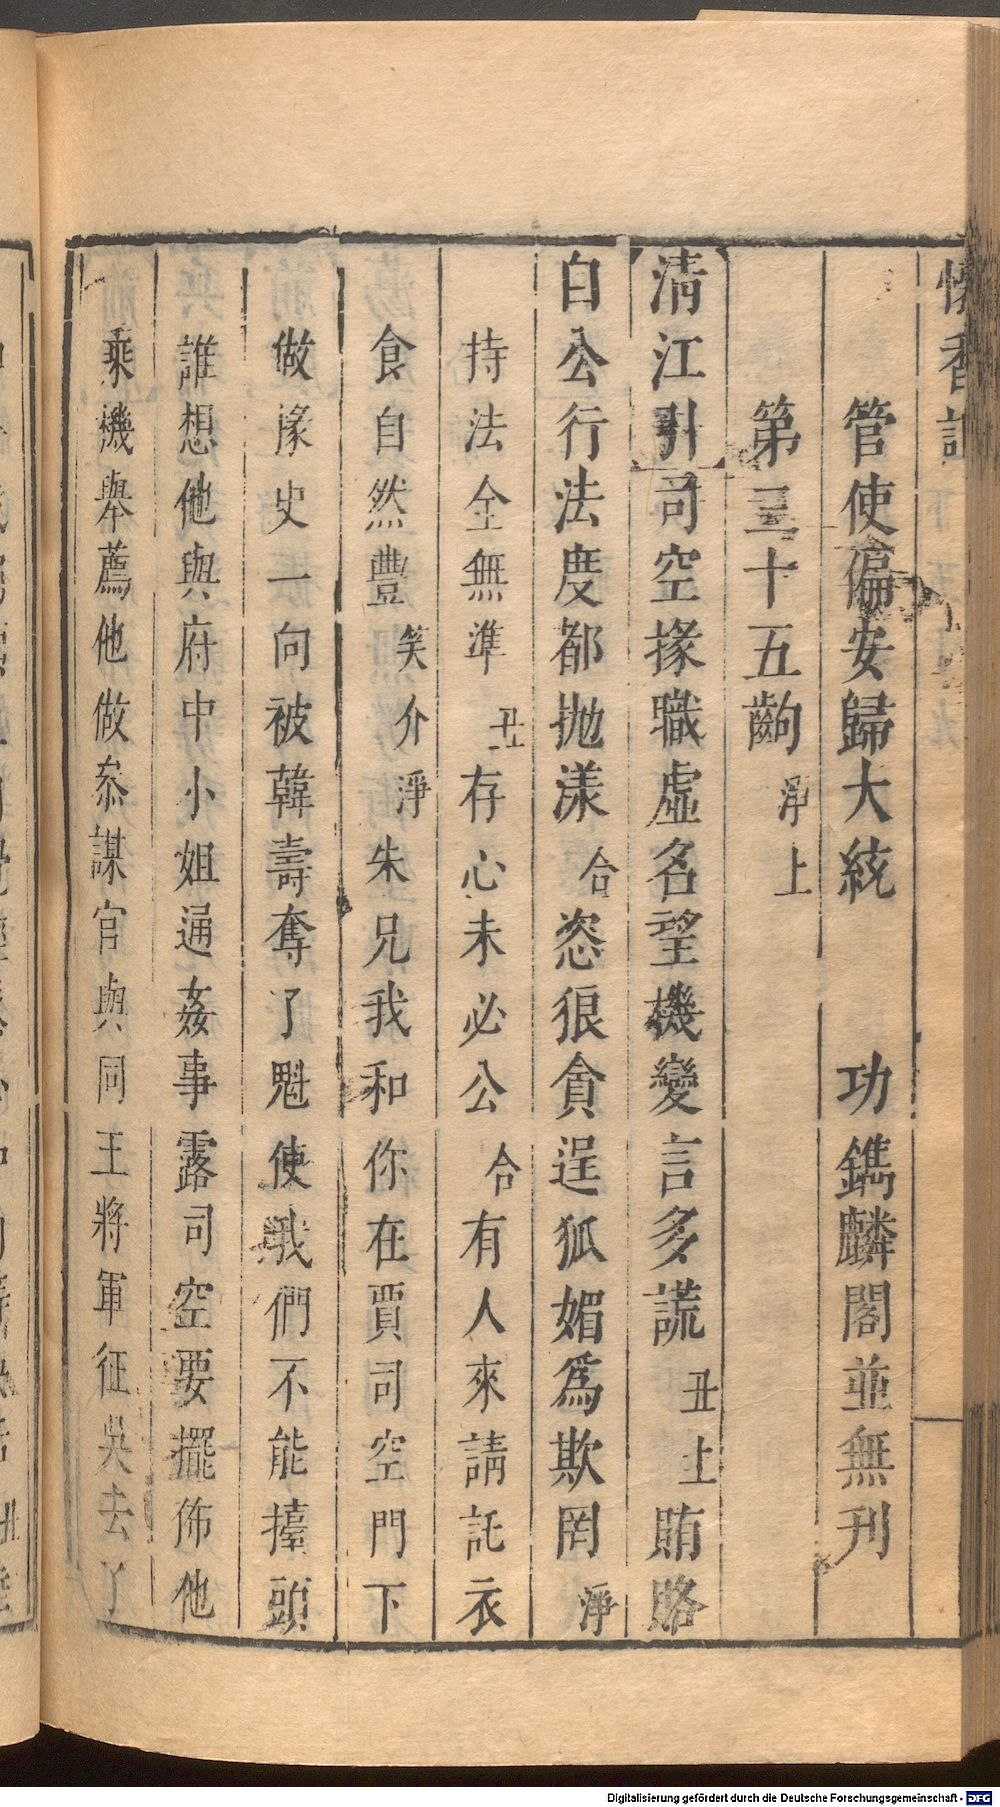 懷香記
管使偏安歸大統　功鐫麟閣並無刊
第三十五齣 淨上
清江引 司空掾職虛名望機變言多謊 丑上 賄賂
白公行法度都抛漾 合 恣狠貪逞狐媚爲欺罔 淨
持法全無準 丑 存心未必公 合 有人來請託衣
食自然豐 笑介 淨 朱兄我和你在賈司空門下
做掾史一向被韓壽奪了魁使我們不能擡頭
誰想他與府中小姐通姦事露司空要擺佈他
乘機舉薦他做叅謀官與同王將軍征吳去了
Digitalisierung gefördert durch die Deutsche Forschungsgemeinschaft - DFG